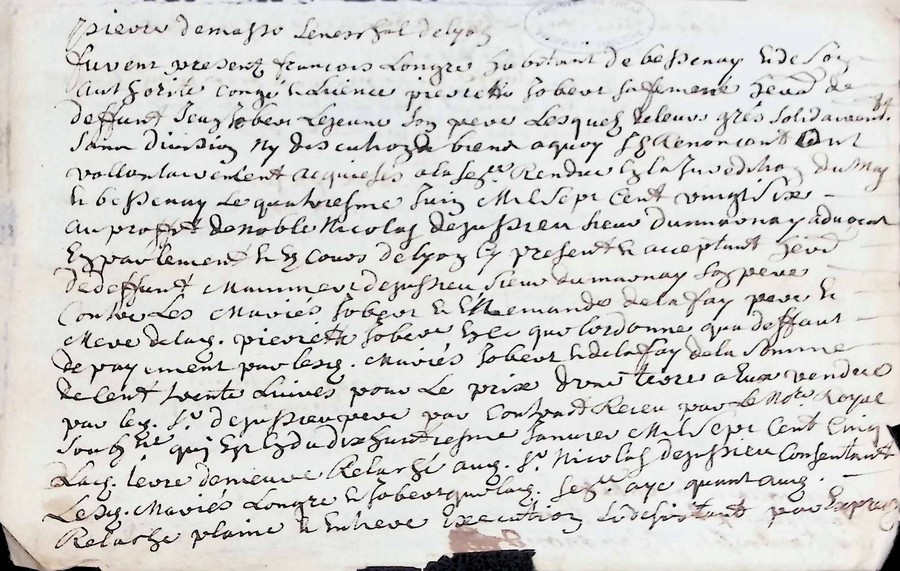 pierre demasso seneschal delyon
furent presentz francois Longre habitant de bessenay Et de Son
authorite congé et licence pierrette Jobert sa femme herit de
deffunt Jean Jobert Lejeune Son pere Lesquelz deleurs grés solidairemt.
sans Division Ny discution de biens a quoy Ilz Renoncent ont
vollontairement acquiessés a la sece Rendue En la Jurisdiction du May
Et bessenay Le quatriesme Juin Mil Sept Cent vingt Six
au proffit de noble Nicolas dejussieu sieur dumarnay advocat
En parlement et Es Cours delyon Cy present et acceptant herit
de deffunt dejussieu sieur dumarnay Son pere
Contre Les Mariés Jobert et Clemande de la fay pere Et
Mere de lad. pierrette Jobert En ce que lordonne qua deffaut
de payement par lesd. Mariés Jobert et de la fay de la Somme
de Cent trente Livres pour Le prix dune terre a Eux vendue
par led. Sr. dejussieu pere par Contract Receu par Le Note Royal
Soubzne qui Est En du dix huitiesme Janvier Mil Sept Cent Cinq
Lad. terre demeure Relaché aud. Sr. Nicolas dejussieu Consentant
Lesd. Mariés Longre et Jobert que lad. sece aye quant aud.
Relache plaine et Entiere Execution Se desistant par Expres